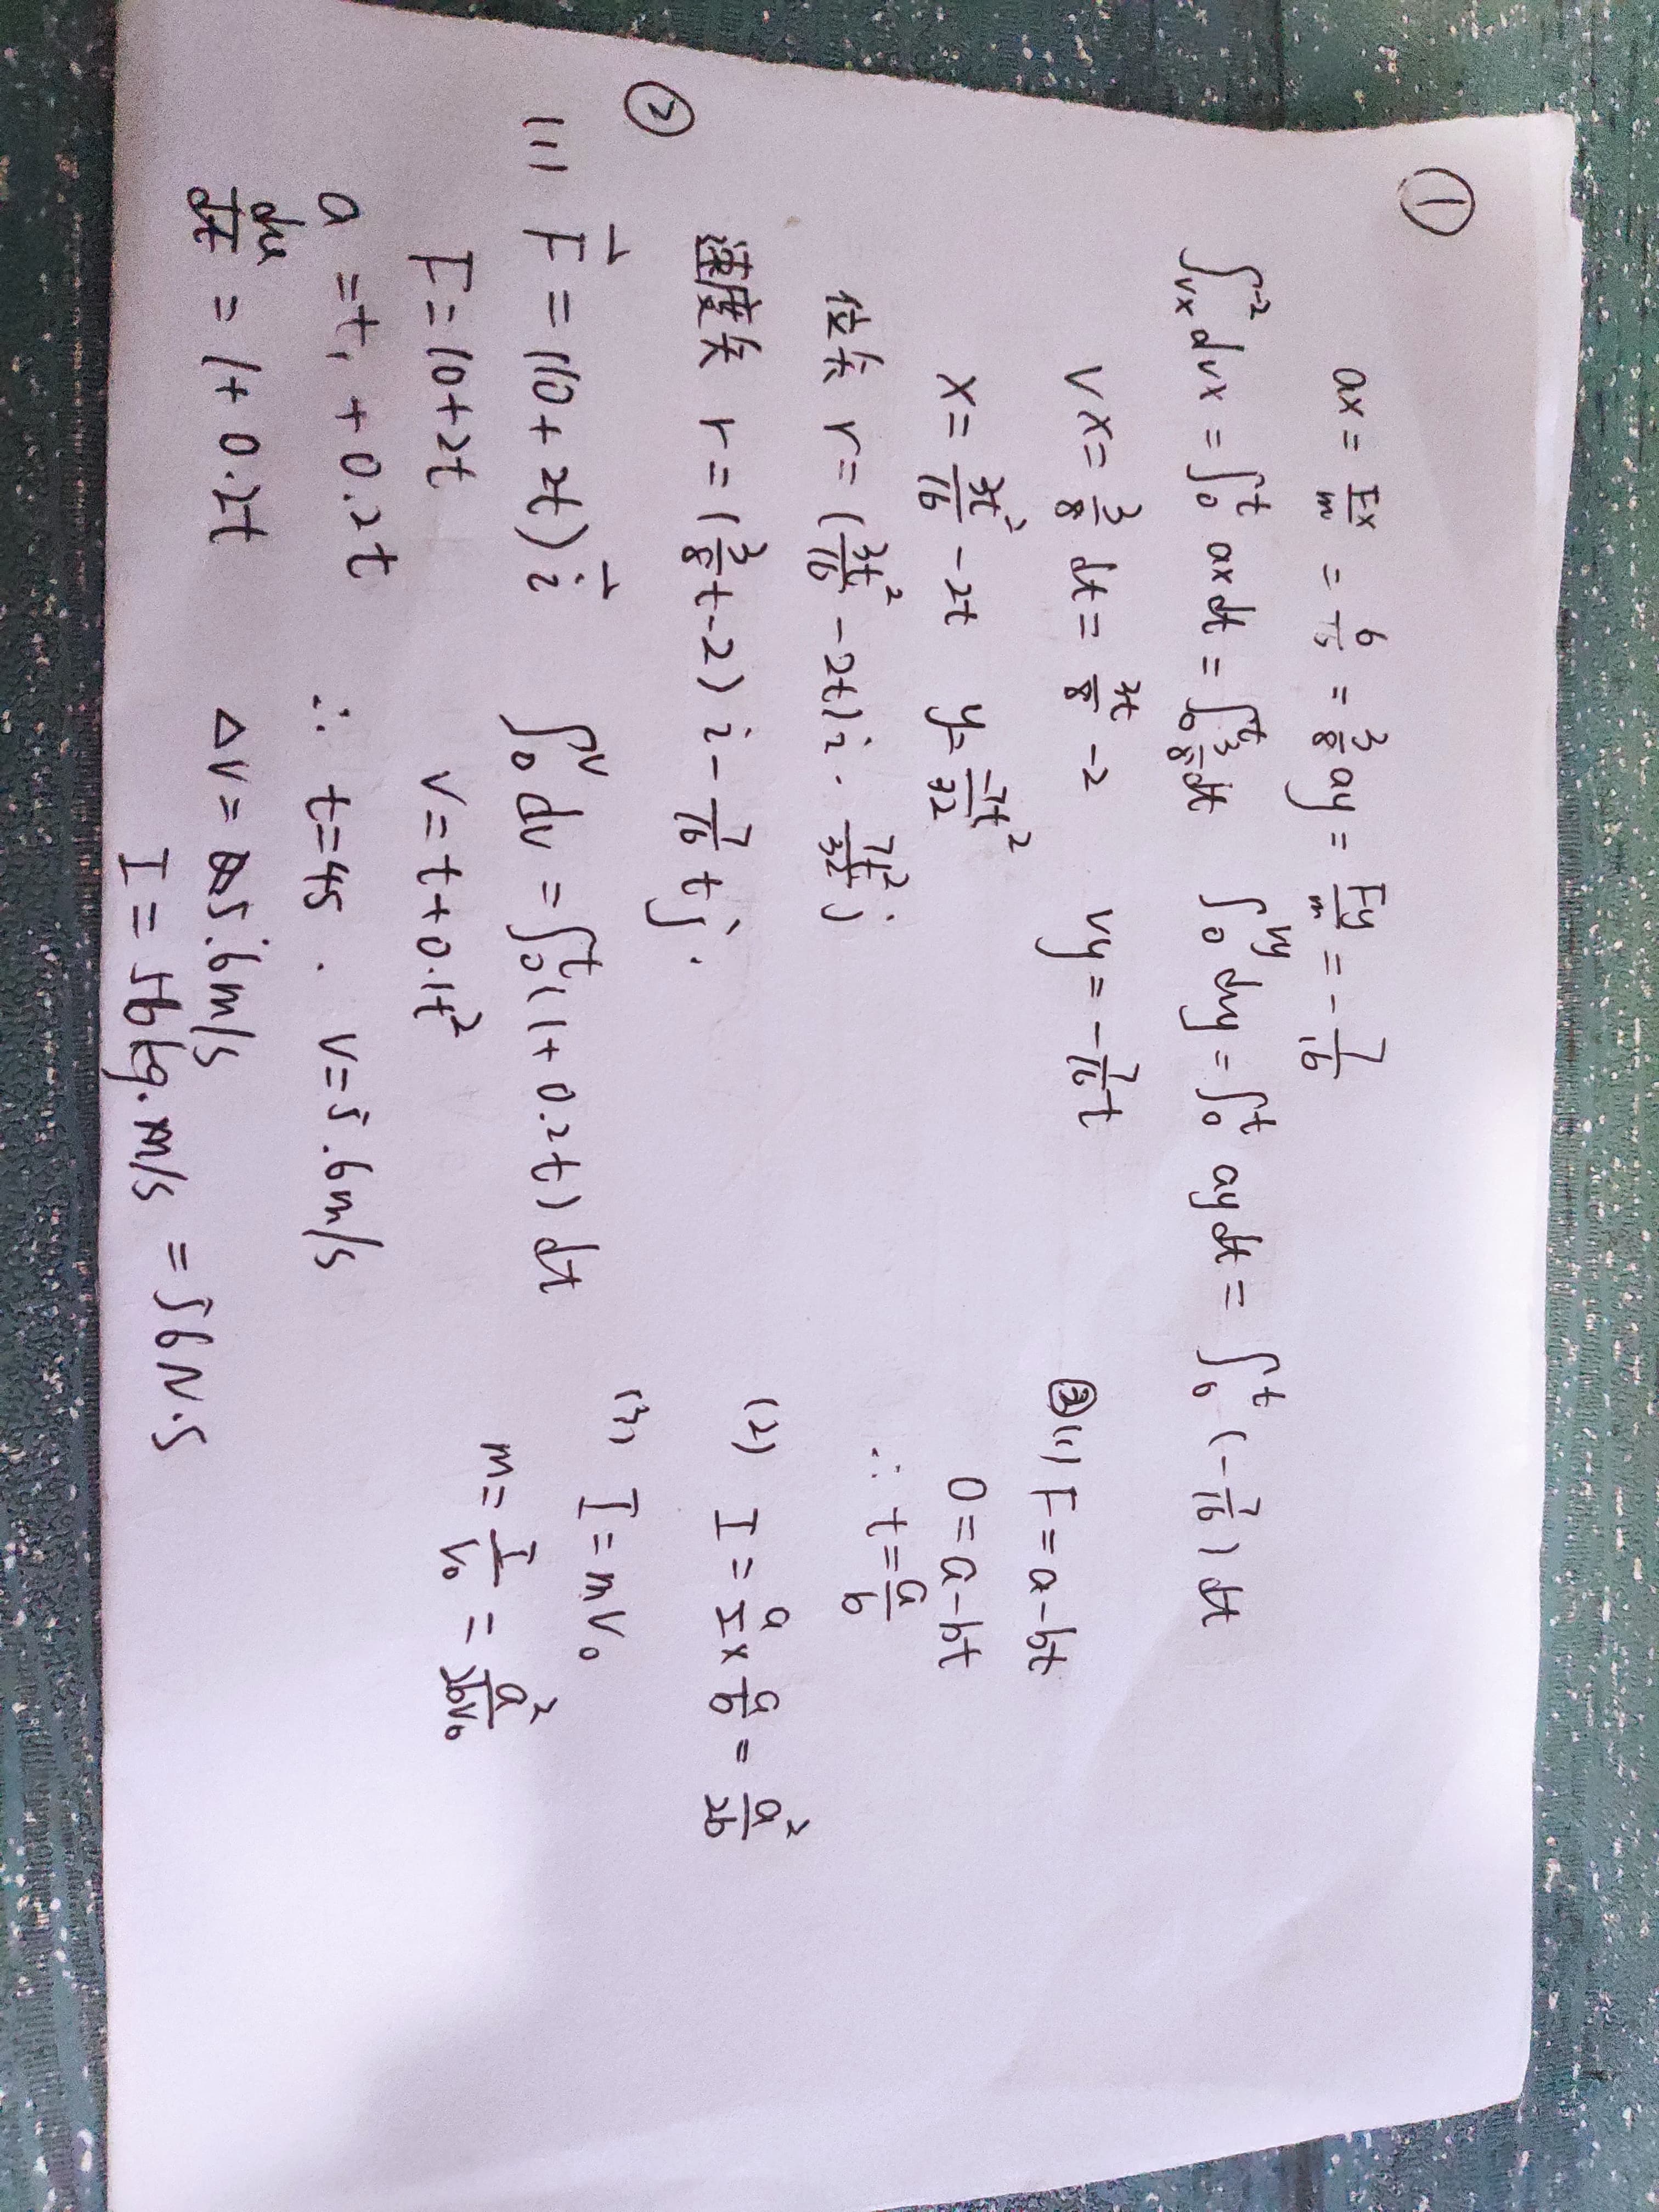 ①
ax = Fx/m = 6/16 = 3/8 ay = Fy/m = -7/16
∫vx^-2 dvx = ∫0^t ax dt = ∫0^t 3/8 dt ∫0^vy dvy = ∫0^t ay dt = ∫0^t (-7/16) dt
vx = 3/8 dt = 3t/8 - 2 vy = -7/16 t
x = 3t²/16 - 2t y = -7t²/32
位矢 r = (3t²/16 - 2t) i - 7t²/32 j
速度矢 r = (3/8 t - 2) i - 7/16 t j.
②
(1) F⃗ = (10 + 2t) i⃗ ∫0^v dv = ∫0^t (1 + 0.2t) dt
F = 10 + 2t v = t + 0.1t²
a = t, + 0.2t ∴ t = 4s . v = 5.6m/s
dv/dt = 1 + 0.2t Δv = 5.6m/s
I = 56kg·m/s = 56N·S
③ (1) F = a - bt
0 = a - bt
∴ t = a/b
(2) I = a/2 × a/b = a²/2b
(3) I = mv₀
m = I/v₀ = a²/2bv₀